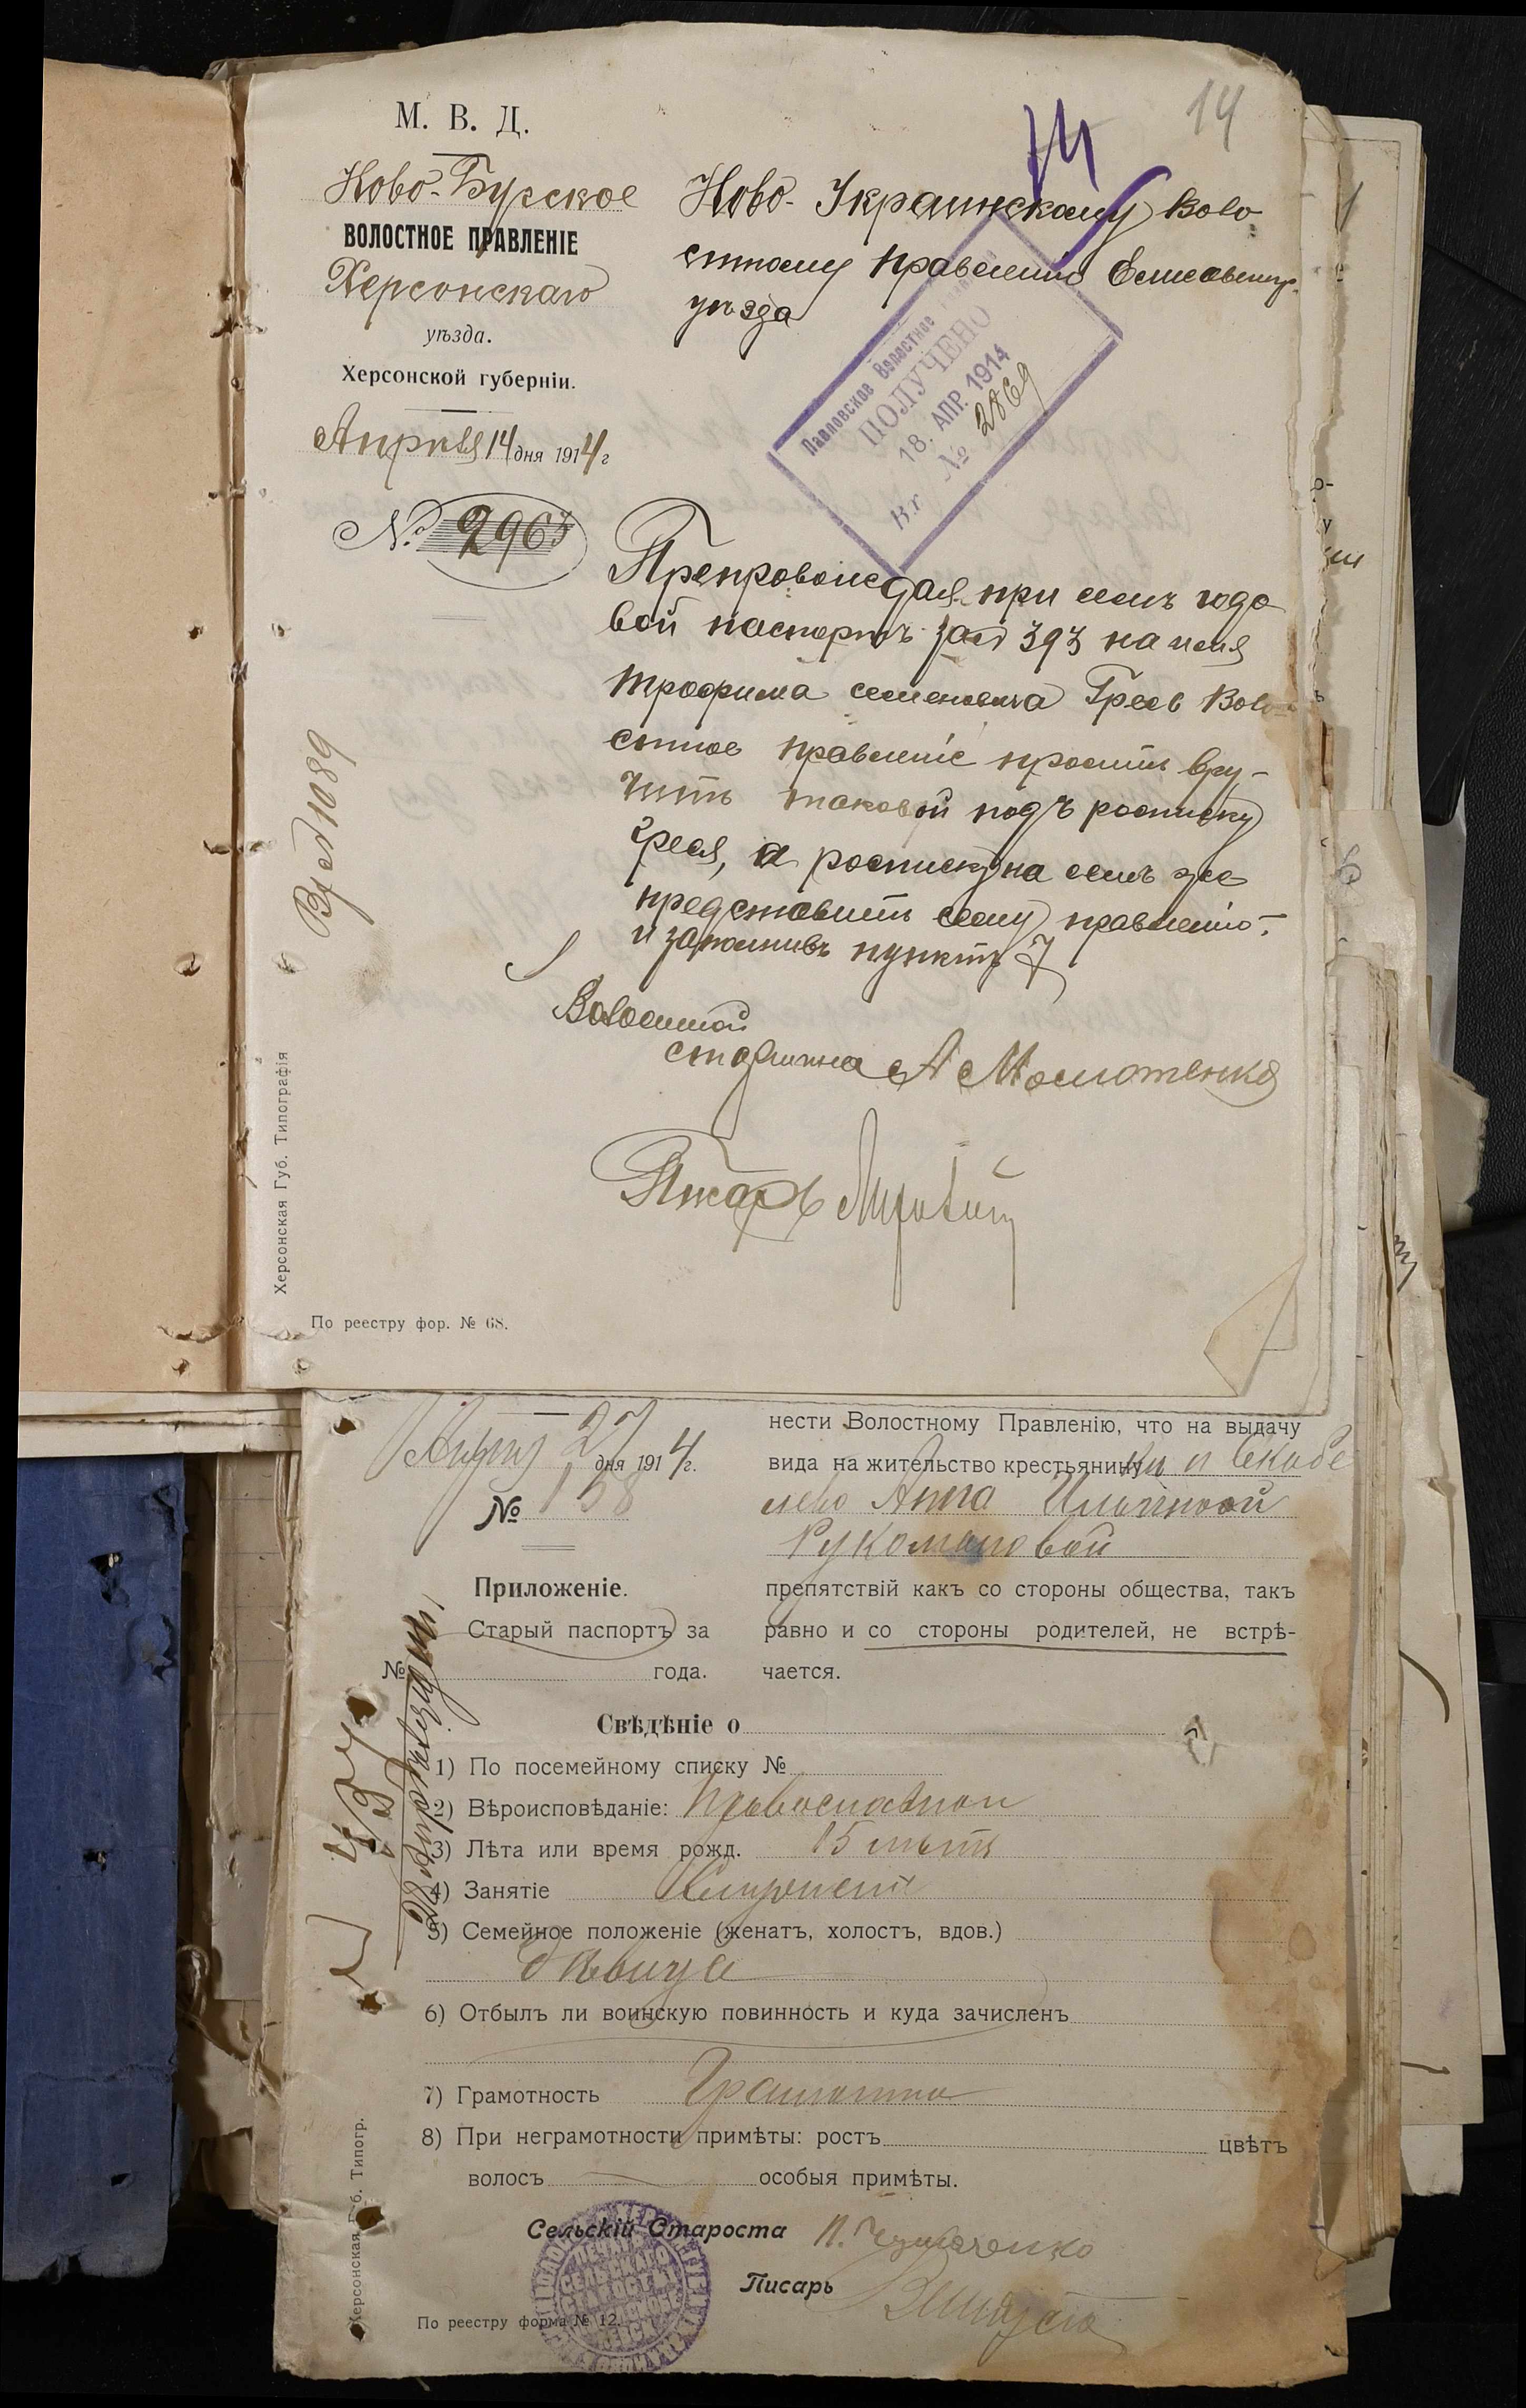 14
14
М. В. Д.
Ново-Бугское
ВОЛОСТНОЕ ПРАВЛЕНІЕ
Херсонскаго
уѣзда.
Херсонской губерніи.
Апрѣля 14 дня 1914 г
№ 2963
Ново-Украинскому Воло-
стному правленію Елисаветгр.
уѣзда
Павловское Волостное
ПОЛУЧЕНО
18. АПР. 1914
Вх № 2869
Препровождая при семъ годо
вой паспортъ за № 393 на имя
Трофима Семеновича Гресь Воло-
стное правленіе проситъ вру-
чить таковой подъ росписку
Греся, а росписку на семъ же
представить сему правленію.
и заполнивъ пунктъ 7
Волостной
старшина А
Писарь
1089
Херсонская Губ. Типографія
По реестру фор. № 68.
27 дня 1914 г.
№ 158
Приложеніе.
Старый паспортъ за
№ года.
нести Волостному Правленію, что на выдачу
вида на жительство крестьянину
Анна Ильиной
Рукомановой
препятствій какъ со стороны общества, такъ
равно и со стороны родителей, не встрѣ-
чается.
Свѣдѣніе о
1) По посемейному списку №
2) Вѣроисповѣданіе: Православном
3) Лѣта или время рожд. 15 лѣтъ
4) Занятіе
5) Семейное положеніе (женатъ, холостъ, вдов.)
дѣвица
6) Отбылъ ли воинскую повинность и куда зачисленъ
7) Грамотность Грамотна
8) При неграмотности примѣты: ростъ цвѣтъ
волосъ особыя примѣты.
Сельскій Староста П.
Писарь
По реестру форма № 12.
Херсонская Губ. Типогр.